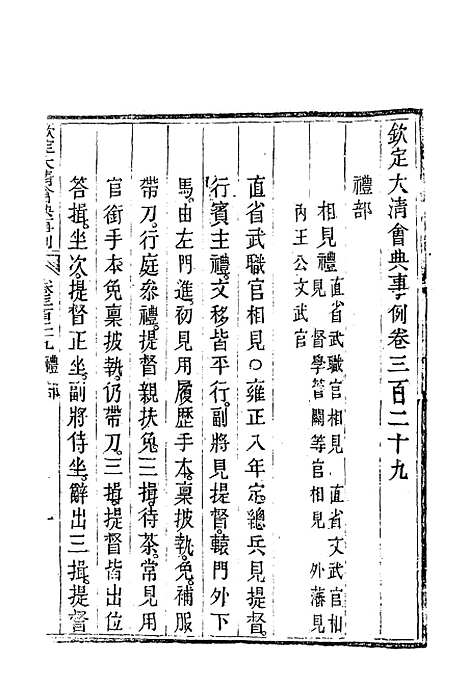 欽定大清會典事例卷三百二十九
禮部
相見禮 直省武職官相見 直省文武官相
見 督學管關等官相見 外藩見
內王公文武官
直省武職官相見○雍正八年定總兵見提督
行賓主禮文移皆平行副將見提督轅門外下
馬由左門進初見用履歷手本稟披執免補服
帶刀行庭參禮提督親扶免三揖待茶常見用
官銜手本免稟披執仍帶刀三揖提督皆出位
答揖坐次提督正坐副將侍坐辭出三揖提督
欽定大清會典事例 卷三百二十九 禮部 一